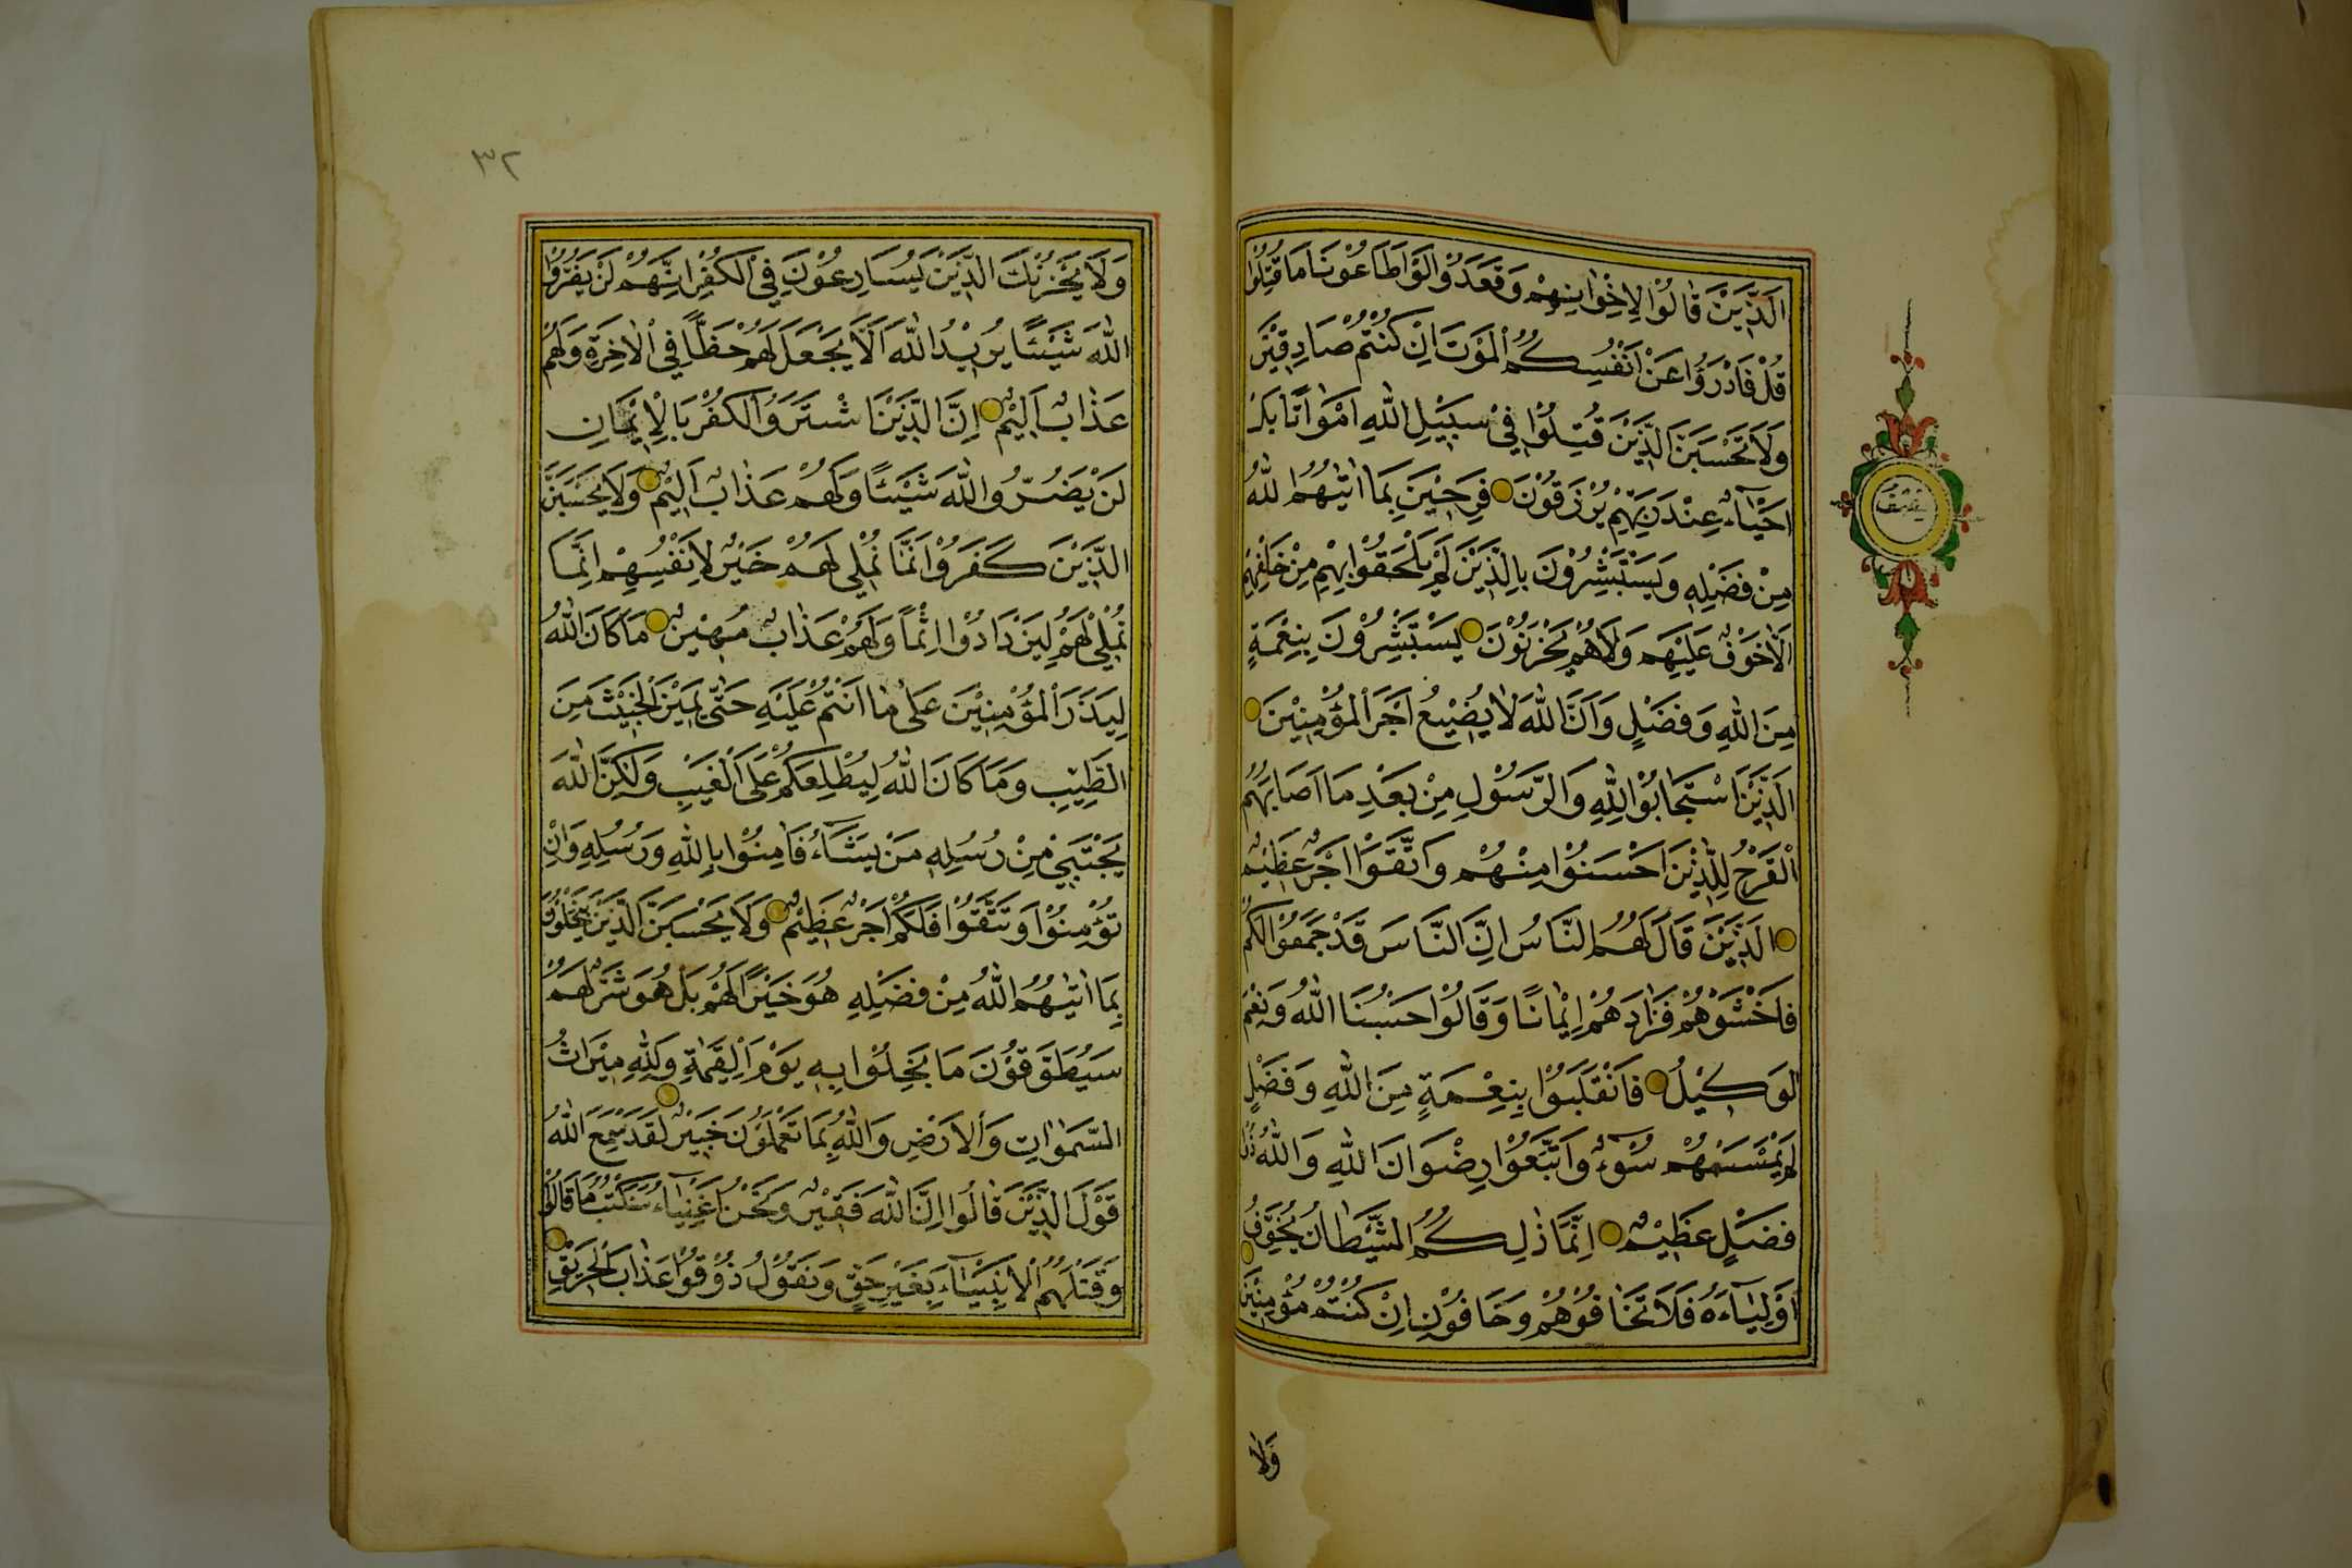 اَلَّذِيْنَ قَالُوْا لِاِخْوَانِهِمْ وَقَعَدُوْا لَوْ اَطَاعُوْنَا مَا قُتِلُوْا
قُلْ فَادْرَؤُا عَنْ اَنْفُسِكُمُ الْمَوْتَ اِنْ كُنْتُمْ صَادِقِيْنَ
وَلَا تَحْسَبَنَّ الَّذِيْنَ قُتِلُوْا فِيْ سَبِيْلِ اللّٰهِ اَمْوَاتًا بَلْ
اَحْيَآءٌ عِنْدَ رَبِّهِمْ يُرْزَقُوْنَ فَرِحِيْنَ بِمَا اٰتٰيهُمُ اللّٰهُ
مِنْ فَضْلِهٖ وَيَسْتَبْشِرُوْنَ بِالَّذِيْنَ لَمْ يَلْحَقُوْا بِهِمْ مِنْ خَلْفِهِمْ
اَلَّا خَوْفٌ عَلَيْهِمْ وَلَا هُمْ يَحْزَنُوْنَ يَسْتَبْشِرُوْنَ بِنِعْمَةٍ
مِنَ اللّٰهِ وَفَضْلٍ وَاَنَّ اللّٰهَ لَا يُضِيْعُ اَجْرَ الْمُؤْمِنِيْنَ
اَلَّذِيْنَ اسْتَجَابُوْا لِلّٰهِ وَالرَّسُوْلِ مِنْ بَعْدِ مَا اَصَابَهُمُ
الْقَرْحُ لِلَّذِيْنَ اَحْسَنُوْا مِنْهُمْ وَاتَّقَوْا اَجْرٌ عَظِيْمٌ
اَلَّذِيْنَ قَالَ لَهُمُ النَّاسُ اِنَّ النَّاسَ قَدْ جَمَعُوْا لَكُمْ
فَاخْشَوْهُمْ فَزَادَهُمْ اِيْمَانًا وَقَالُوْا حَسْبُنَا اللّٰهُ وَنِعْمَ
الْوَكِيْلُ فَانْقَلَبُوْا بِنِعْمَةٍ مِنَ اللّٰهِ وَفَضْلٍ
لَمْ يَمْسَسْهُمْ سُوْٓءٌ وَاتَّبَعُوْا رِضْوَانَ اللّٰهِ وَاللّٰهُ ذُوْ
فَضْلٍ عَظِيْمٍ اِنَّمَا ذٰلِكُمُ الشَّيْطَانُ يُخَوِّفُ
اَوْلِيَآءَهُ فَلَا تَخَافُوْهُمْ وَخَافُوْنِ اِنْ كُنْتُمْ مُؤْمِنِيْنَ
وَلَا
٣٢
وَلَا يَحْزُنْكَ الَّذِيْنَ يُسَارِعُوْنَ فِي الْكُفْرِ اِنَّهُمْ لَنْ يَضُرُّوا
اللّٰهَ شَيْئًا يُرِيْدُ اللّٰهُ اَلَّا يَجْعَلَ لَهُمْ حَظًّا فِي الْاٰخِرَةِ وَلَهُمْ
عَذَابٌ اَلِيْمٌ اِنَّ الَّذِيْنَ اشْتَرَوُا الْكُفْرَ بِالْاِيْمَانِ
لَنْ يَضُرُّوا اللّٰهَ شَيْئًا وَلَهُمْ عَذَابٌ اَلِيْمٌ وَلَا يَحْسَبَنَّ
الَّذِيْنَ كَفَرُوْا اَنَّمَا نُمْلِي لَهُمْ خَيْرٌ لِاَنْفُسِهِمْ اِنَّمَا
نُمْلِي لَهُمْ لِيَزْدَادُوْا اِثْمًا وَلَهُمْ عَذَابٌ مُهِيْنٌ مَا كَانَ اللّٰهُ
لِيَذَرَ الْمُؤْمِنِيْنَ عَلٰى مَا اَنْتُمْ عَلَيْهِ حَتّٰى يَمِيْزَ الْخَبِيْثَ مِنَ
الطَّيِّبِ وَمَا كَانَ اللّٰهُ لِيُطْلِعَكُمْ عَلَى الْغَيْبِ وَلٰكِنَّ اللّٰهَ
يَجْتَبِي مِنْ رُسُلِهٖ مَنْ يَشَآءُ فَاٰمِنُوْا بِاللّٰهِ وَرُسُلِهٖ وَاِنْ
تُؤْمِنُوْا وَتَتَّقُوْا فَلَكُمْ اَجْرٌ عَظِيْمٌ وَلَا يَحْسَبَنَّ الَّذِيْنَ يَبْخَلُوْنَ
بِمَا اٰتٰيهُمُ اللّٰهُ مِنْ فَضْلِهٖ هُوَ خَيْرًا لَهُمْ بَلْ هُوَ شَرٌّ لَهُمْ
سَيُطَوَّقُوْنَ مَا بَخِلُوْا بِهٖ يَوْمَ الْقِيٰمَةِ وَلِلّٰهِ مِيْرَاثُ
السَّمٰوَاتِ وَالْاَرْضِ وَاللّٰهُ بِمَا تَعْمَلُوْنَ خَبِيْرٌ لَقَدْ سَمِعَ اللّٰهُ
قَوْلَ الَّذِيْنَ قَالُوْا اِنَّ اللّٰهَ فَقِيْرٌ وَنَحْنُ اَغْنِيَآءُ سَنَكْتُبُ مَا قَالُوْا
وَقَتْلَهُمُ الْاَنْبِيَآءَ بِغَيْرِ حَقٍّ وَنَقُوْلُ ذُوْقُوْا عَذَابَ الْحَرِيْقِ